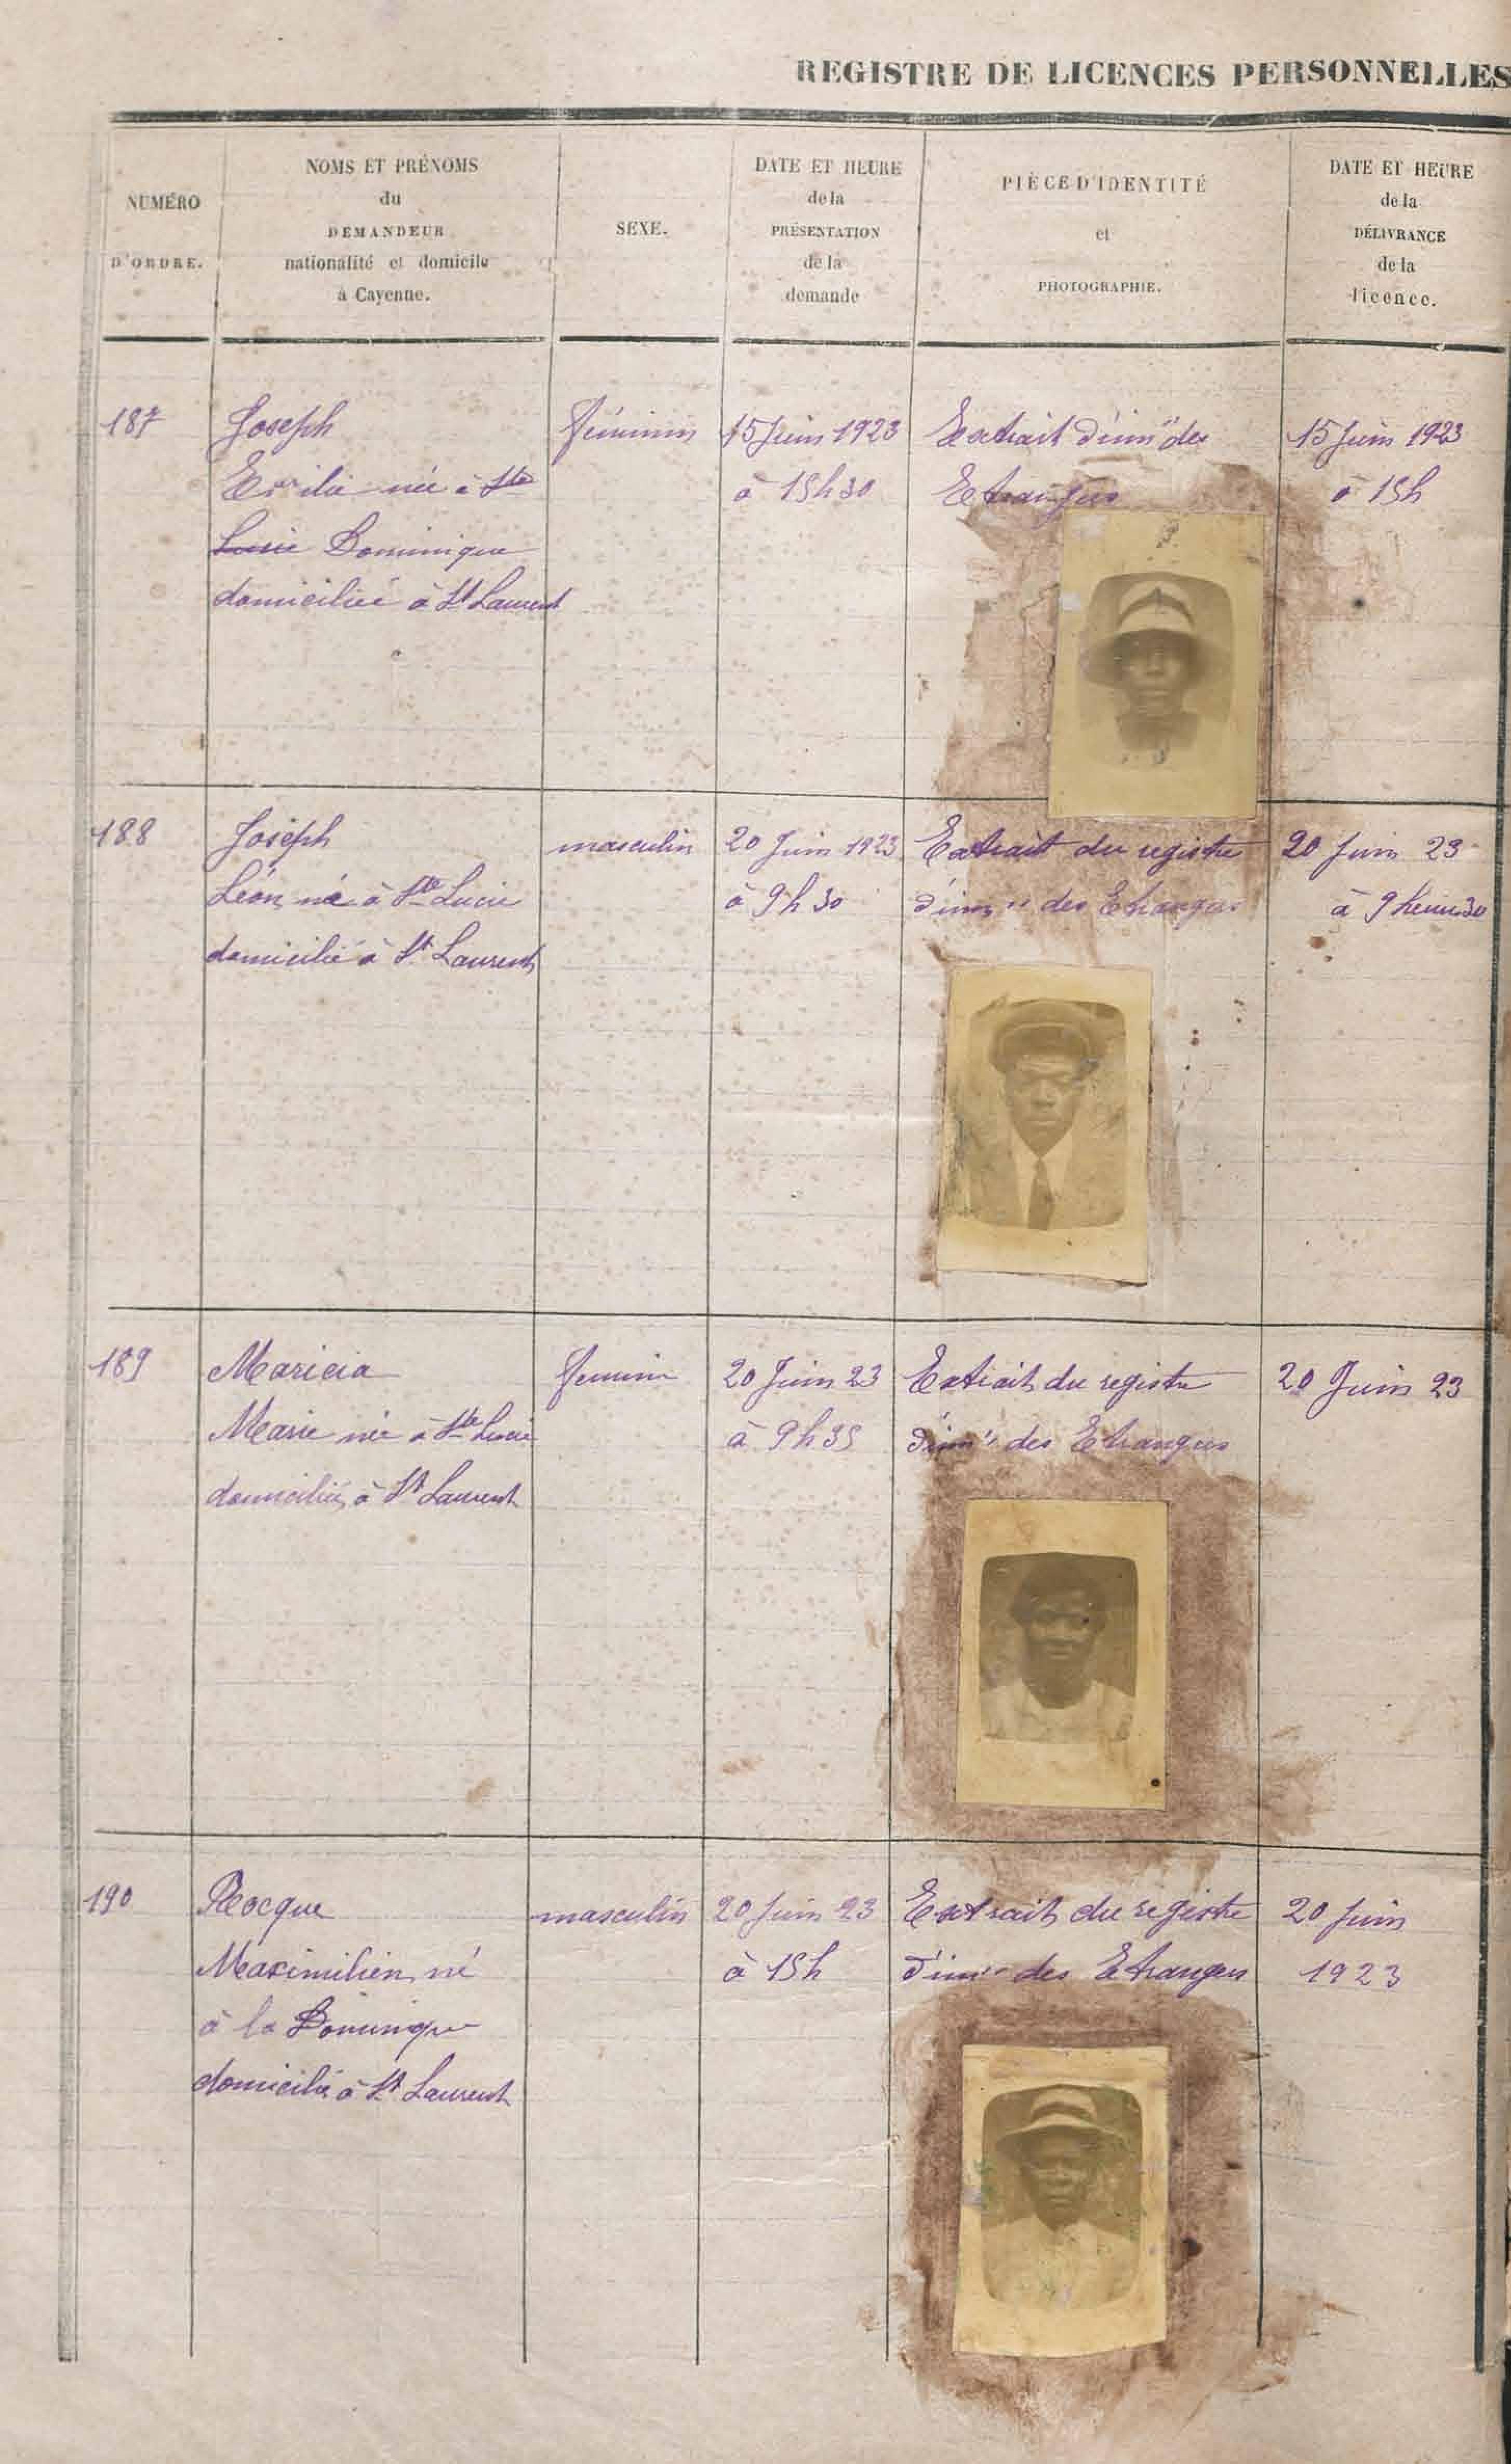 REGISTRE DE LICENCES PERSONNELLES
NUMÉRO
D'ORDRE.
NOMS ET PRÉNOMS
du
DEMANDEUR
nationalité et domicile
à Cayenne.
SEXE.
DATE ET HEURE
de la
PRÉSENTATION
de la
demande
PIÈCE D'IDENTITÉ
et
PHOTOGRAPHIE.
DATE ET HEURE
de la
DÉLIVRANCE
de la
licence.
187
Joseph
née à Ste
Lucie Dominique
domiciliée à St Laurent
féminin
15 Juin 1923
à 15h30
Extrait d'imon des
Etrangers
15 Juin 1923
à 15h
188
Joseph
Léon né à Ste Lucie
domicilié à St Laurent
masculin
20 Juin 1923
à 9h30
Extrait du registre
d'imon des Etrangers
20 Juin 23
à 9heures30
189
Maricia
Marie née à Ste Lucie
domiciliée à St Laurent
feminin
20 Juin 23
à 9h35
Extrait du registre
d'imon des Etrangers
20 Juin 23
190
Rocque
Maximilien né
à la Dominique
domicilié à St Laurent
masculin
20 Juin 23
à 15h
Extrait du registre
d'imon des Etrangers
20 Juin
1923